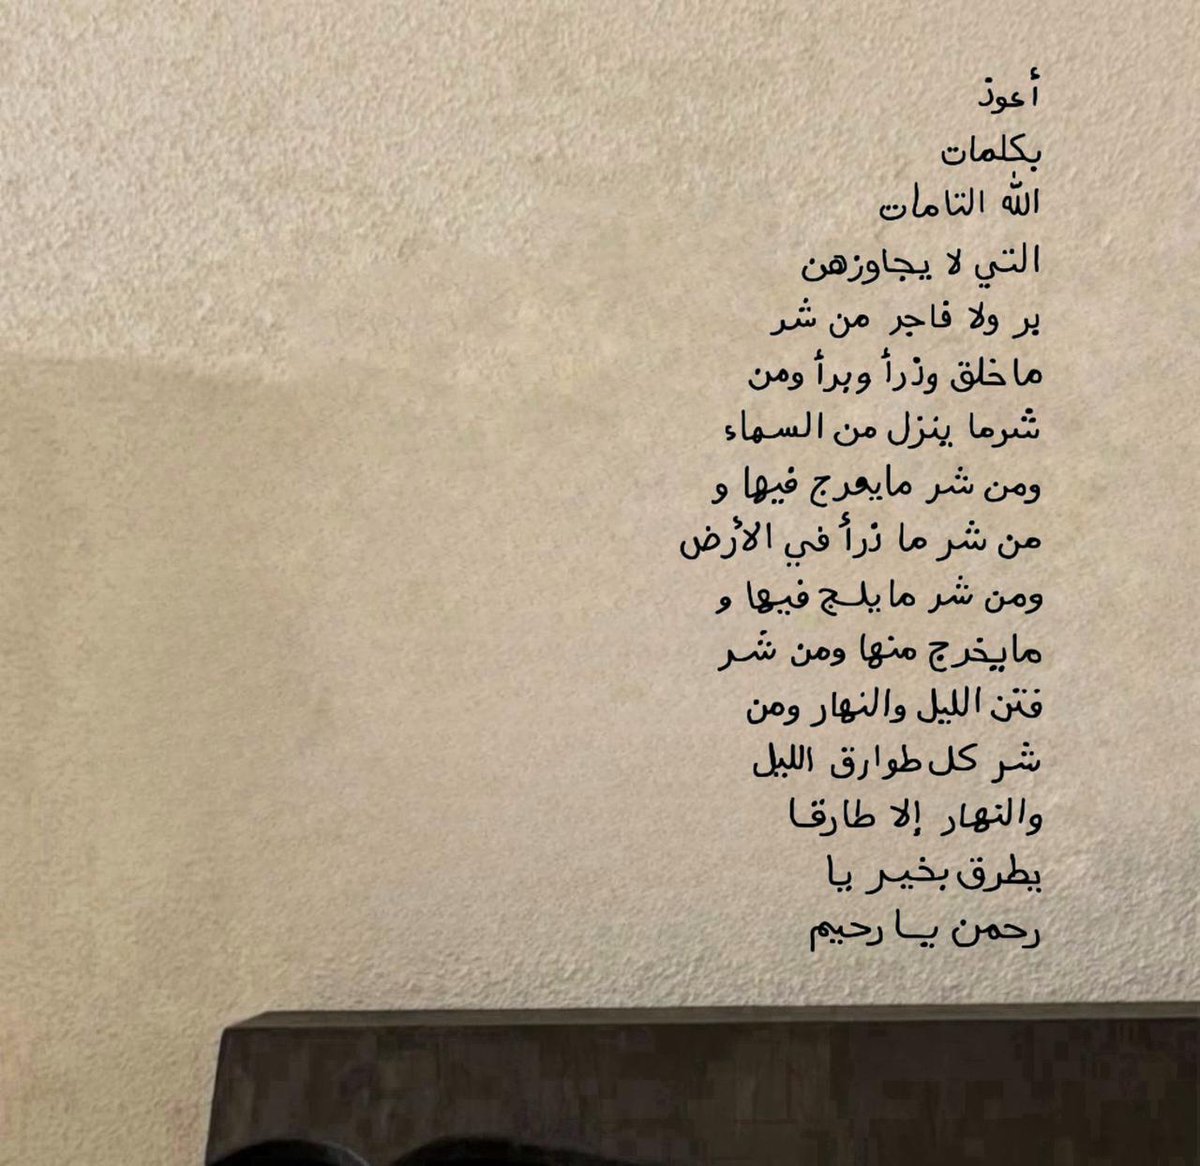 أعوذ
بكلمات
الله التامات
التي لا يجاوزهن
بر ولا فاجر من شر
ماخلق وذرأ وبرأ ومن
شرما ينزل من السماء
ومن شر مايعرج فيها و
من شر ما ذرأ في الأرض
ومن شر مايلج فيها و
مايخرج منها ومن شر
فتن الليل والنهار ومن
شر كل طوارق الليل
والنهار إلا طارقا
يطرق بخير يا
رحمن يا رحيم